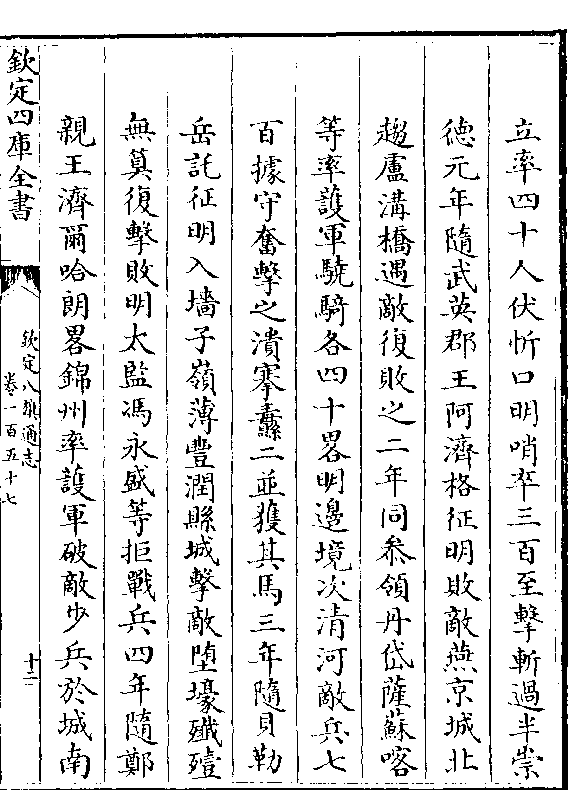 立率四十人伏忻口明哨卒三百至擊斬過半崇
德元年隨武英郡王阿濟格征明敗敵燕京城北
趨盧溝橋遇敵復敗之二年同叅領丹岱薩蘇喀
等率護軍驍騎各四十畧明邊境次清河敵兵七
百據守奮擊之潰搴纛二並獲其馬三年隨貝勒
岳託征明入墻子嶺薄豐潤縣城擊敵墮壕殱殪
無算復擊敗明太監馮永盛等拒戰兵四年隨鄭
親王濟爾哈朗畧錦州率護軍破敵步兵於城南
欽定四庫全書
欽定八旗通志
卷一百五十七
十二